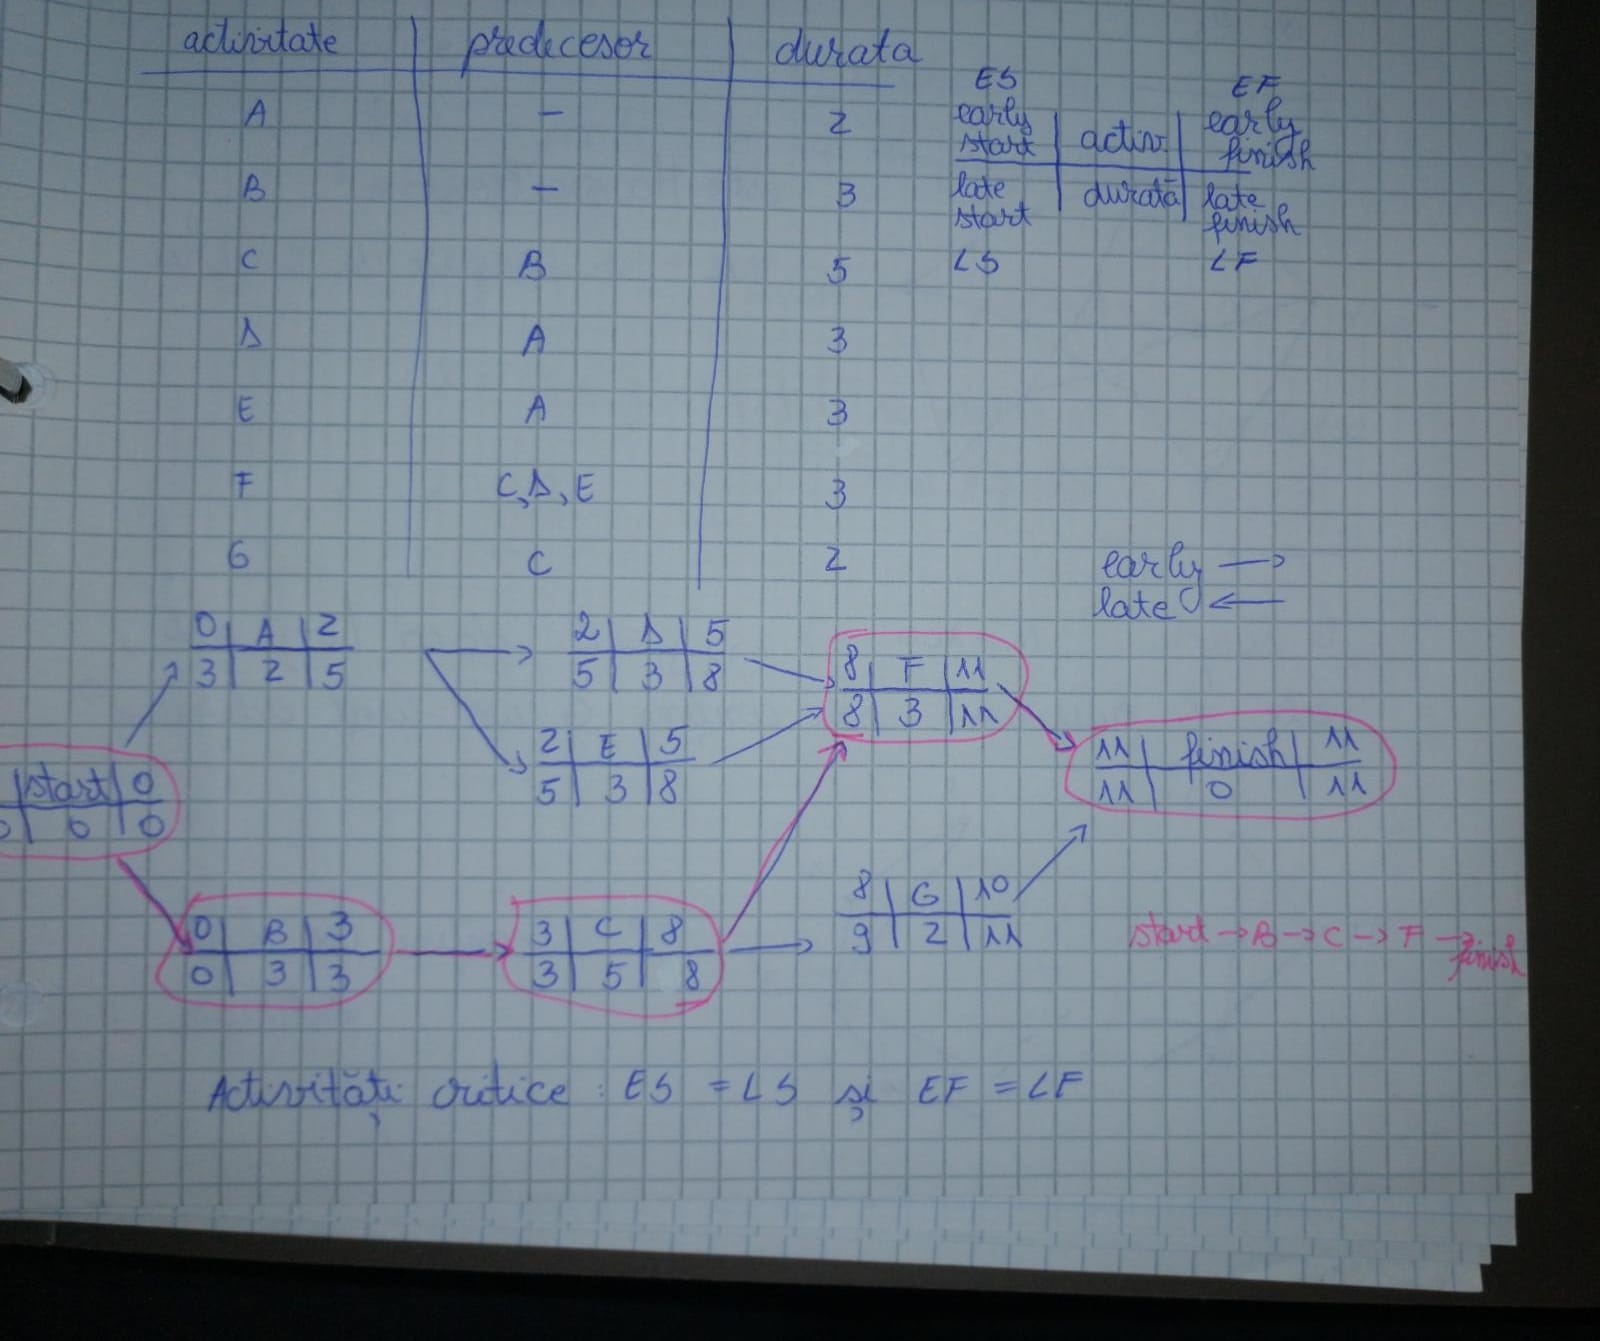 activitate | predecesor | durata
A | – | 2
B | – | 3
C | B | 5
D | A | 3
E | A | 3
F | C, D, E | 3
G | C | 2
ES EF
early start | activ. | early finish
late start | durată | late finish
LS LF
early →
late ←
0 | A | 2
3 | 2 | 5
2 | D | 5
5 | 3 | 8
8 | F | 11
8 | 3 | 11
2 | E | 5
5 | 3 | 8
11 | finish | 11
11 | 0 | 11
start | 0
0 | 0 | 0
8 | G | 10
9 | 2 | 11
0 | B | 3
0 | 3 | 3
3 | C | 8
3 | 5 | 8
start → B → C → F → finish
Activități critice : ES = LS și EF = LF